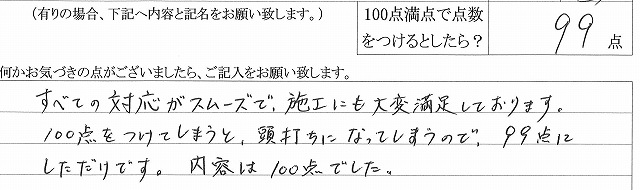 (有りの場合、下記へ内容と記名をお願い致します。)
100点満点で点数
をつけるとしたら?
99 点
何かお気づきの点がございましたら、ご記入をお願い致します。
すべての対応がスムーズで、施工にも大変満足しております。
100点をつけてしまうと、頭打ちになってしまうので、99点に
しただけです。 内容は100点でした。